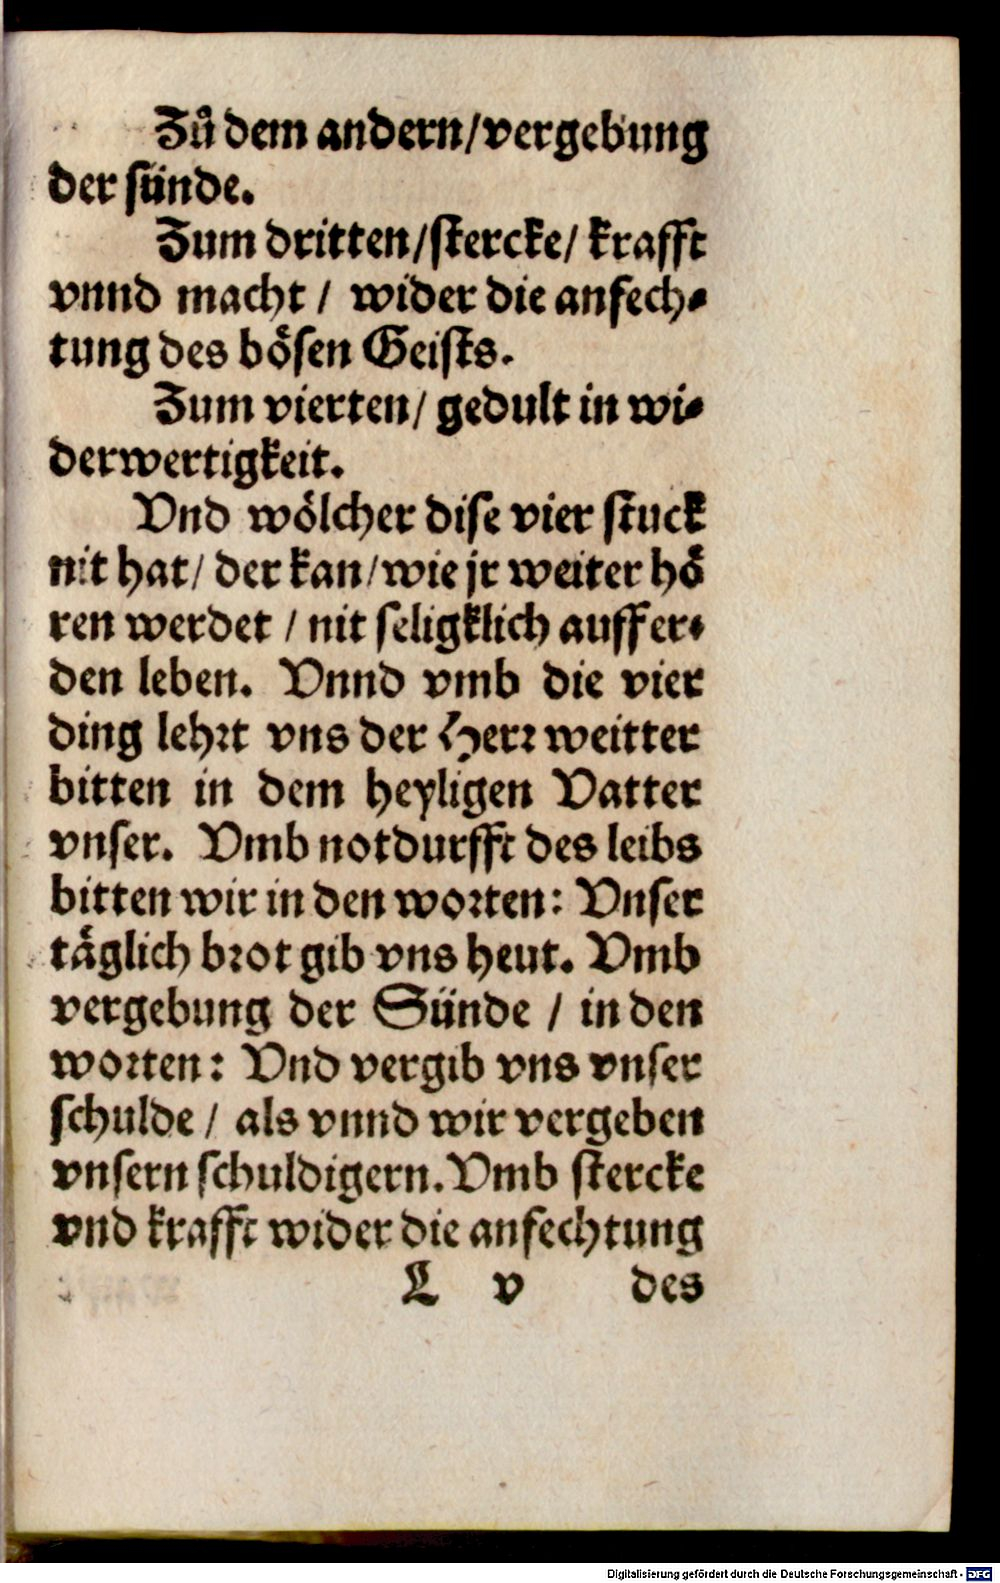 Zů dem andern/vergebung
der sünde.
Zum dritten/stercke/ krafft
vnnd macht / wider die anfech-
tung des bösen Geists.
Zum vierten/ gedult in wi-
derwertigkeit.
Vnd wölcher dise vier stuck
nit hat/ der kan/wie jr weiter hö
ren werdet / nit seligklich auff er-
den leben. Vnnd vmb die vier
ding lehrt vns der Herr weitter
bitten in dem heyligen Vatter
vnser. Vmb notdurfft des leibs
bitten wir in den worten: Vnser
täglich brot gib vns heut. Vmb
vergebung der Sünde / in den
worten: Vnd vergib vns vnser
schulde / als vnnd wir vergeben
vnsern schuldigern. Vmb stercke
vnd krafft wider die anfechtung
L v des
Digitalisierung gefördert durch die Deutsche Forschungsgemeinschaft - DFG